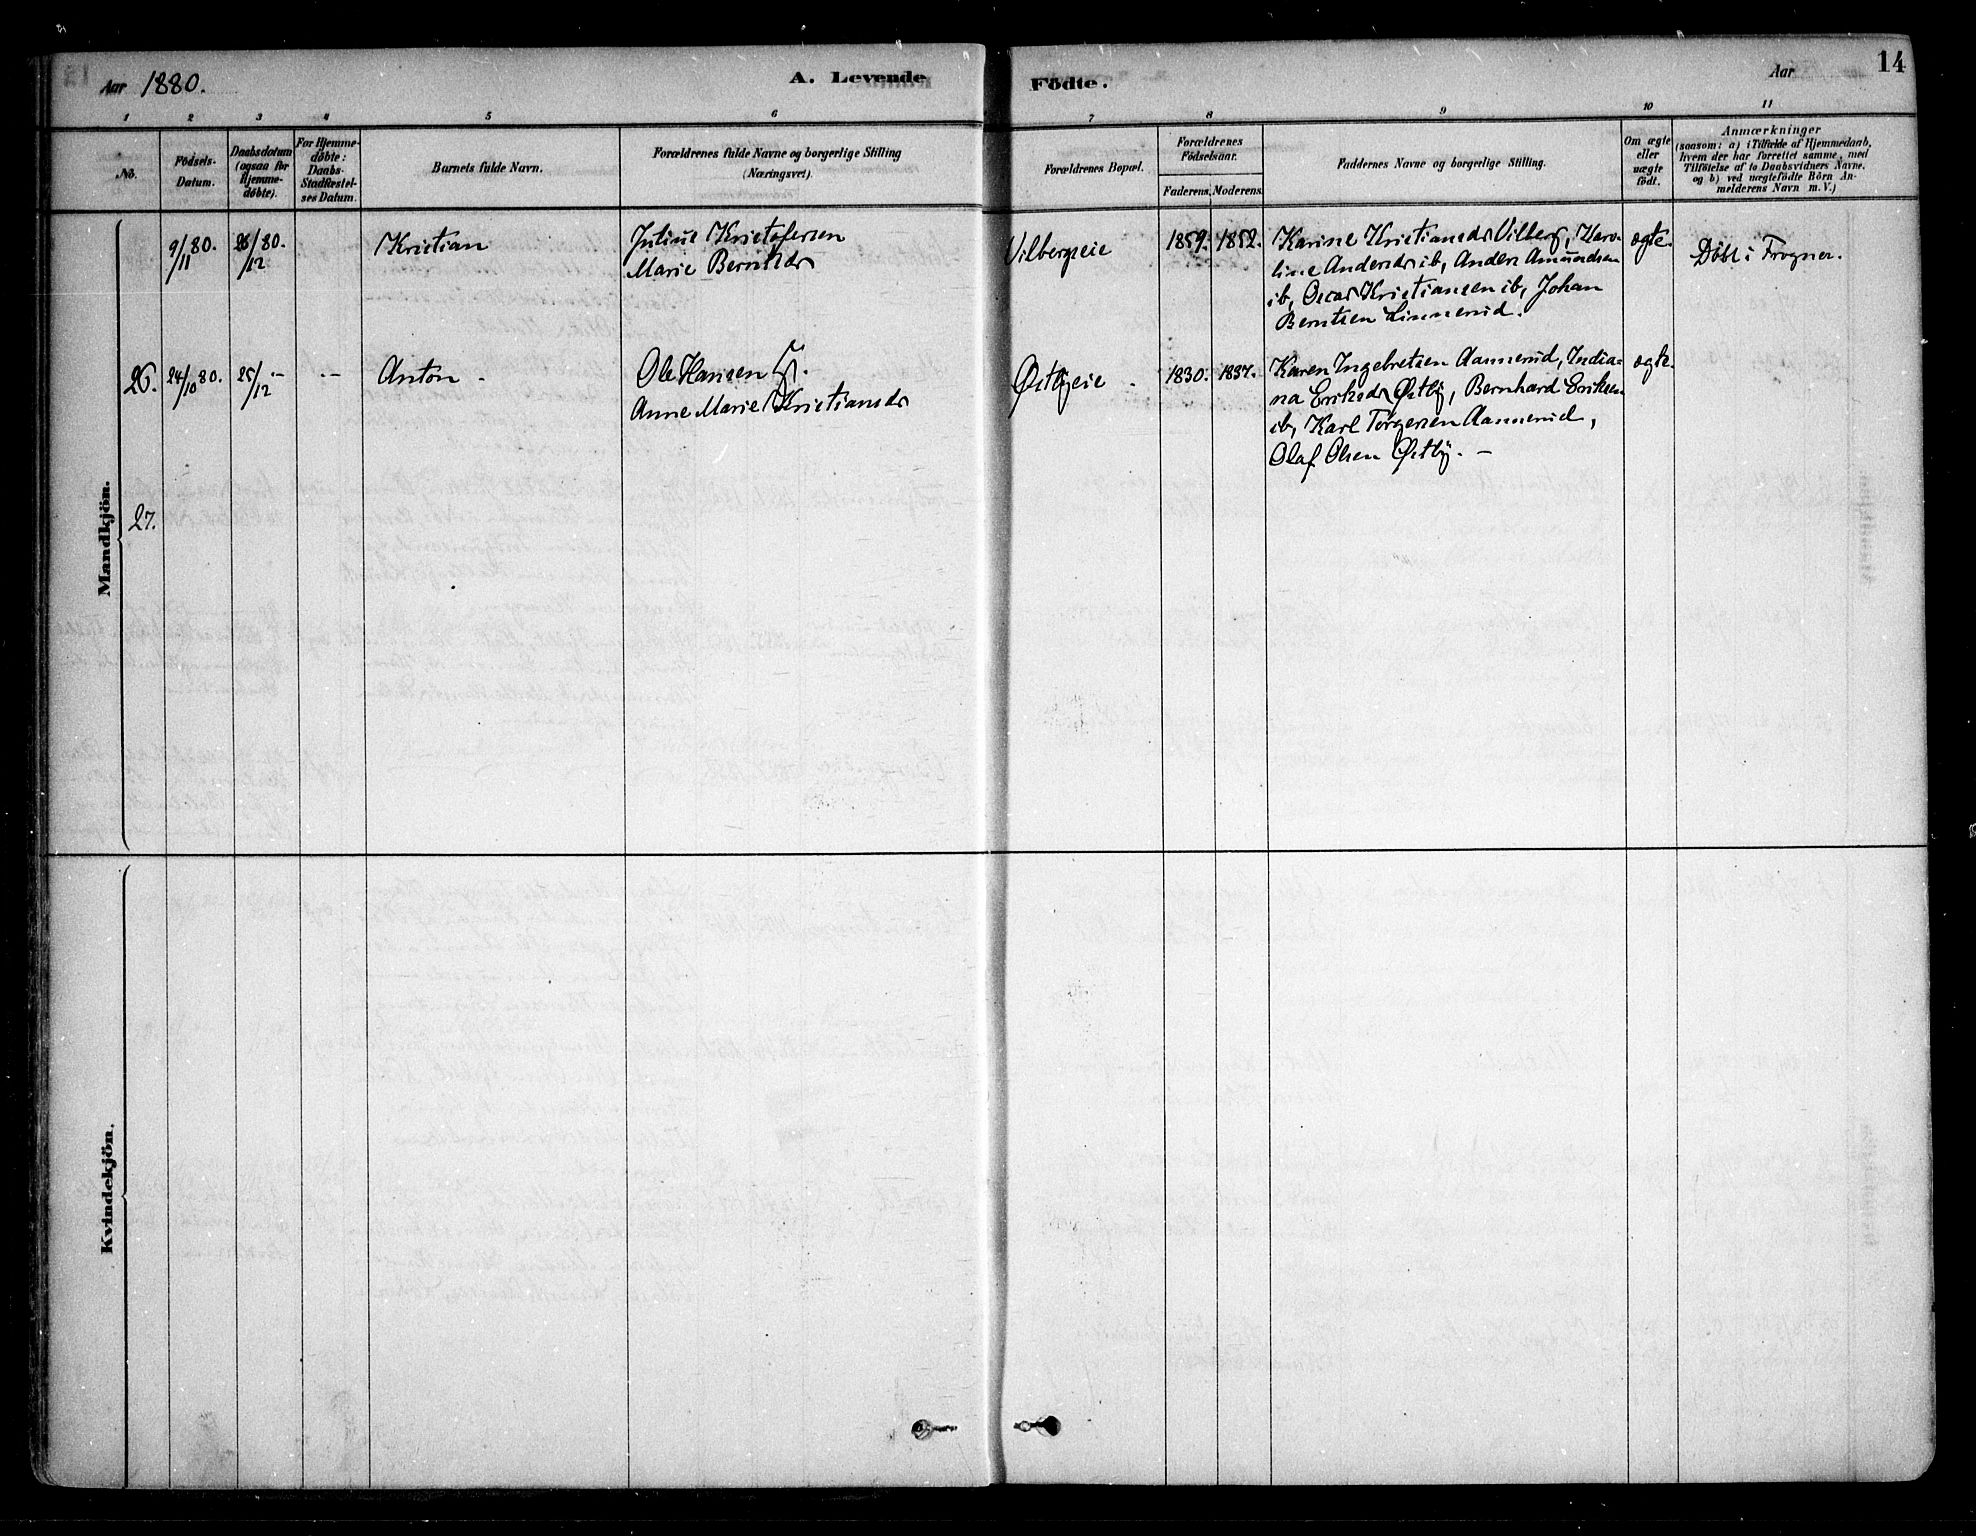 Aar 1880.
A. Levende
Födte.
Aar
14
1 2 3 4 5 6 7 8 9 10 11
No.
Födsels-
Datum.
Daabsdatum
(ogsaa for
Hjemme-
döbte).
For Hjemme-
döbte:
Daabs-
Stadfæstel-
ses Datum.
Barnets fulde Navn.
Forældrenes fulde Navne og borgerlige Stilling
(Næringsvei).
Forældrenes Bopæl.
Forældrenes
Födselsaar.
Faderens. Moderens.
Faddernes Navne og borgerlige Stilling.
Om ægte
eller
uægte
födt.
Anmærkninger
(saasom: a) i Tilfælde af Hjemmedaab,
hvem der har forrettet samme, med
Tilföielse af to Daabsvidners Navne.
og b) ved uægtefödte Börn An-
melderens Navn m. V.)
Mandkjön.
9/11 80. 26/12 80. Kristian
Julius Kristofersen
Marie Berntsdr
Vilbergseie 1859. 1852.
Karine Kristiansdr Vilberg, Karo-
line Andersdr ib, Anders Amundsen
ib, Oscar Kristiansen ib, Johan
Berntsen Linnerud.
ægte.
Döbt i Frogner.
26. 24/10 80. 25/12 - - - Anton -
Ole Hansen
Anne Marie Kristiansdr
Østbyeie - 1830. 1837.
Karen Ingebretsen Aannerud, India-
na Eriksdr Østby, Bernhard Eriksen
ib, Karl Torgersen Aannerud,
Olaf Olsen Østby. -
ægte.
27.
Kvindekjön.